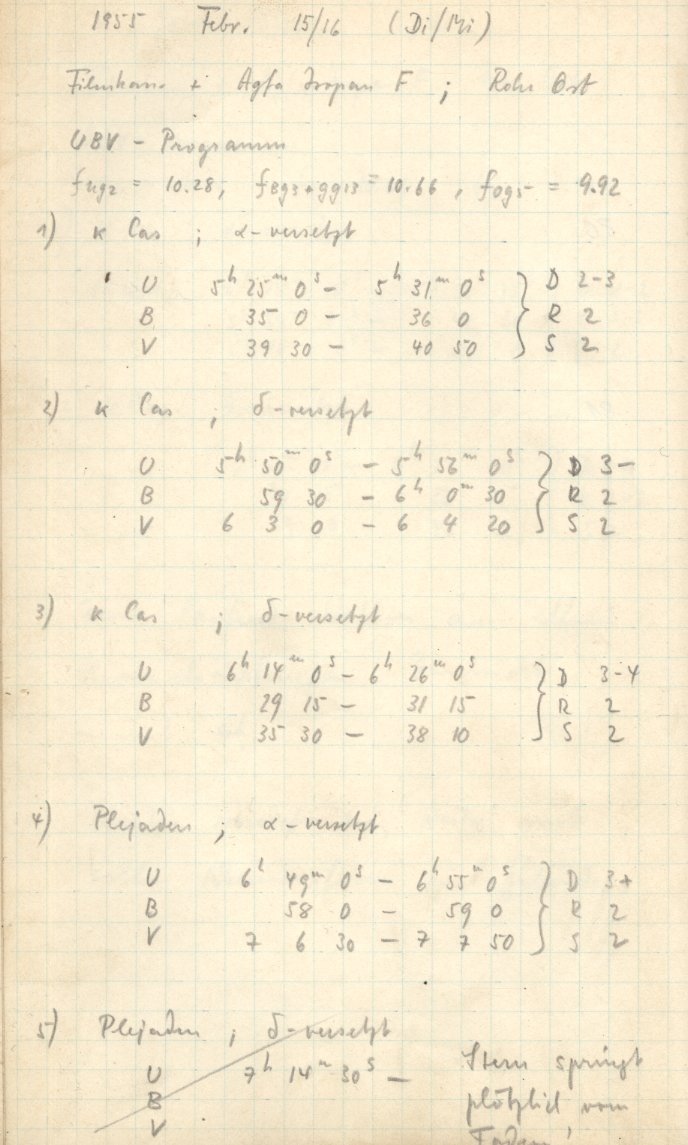 1955 Febr. 15/16 (Di/Mi)
Filmkass. + Agfa Isopan F ; Rohr Ost
UBV - Programm
fug2 = 10.28, fBg3+gg13 = 10.66, fog5 = 9.92
1) κ Cas ; α-versetzt
U 5h 25m 0s - 5h 31m 0s } D 2-3
B 35 0 - 36 0 R 2
V 39 30 - 40 50 S 2
2) κ Cas ; δ-versetzt
U 5h 50m 0s - 5h 56m 0s } D 3-
B 59 30 - 6h 0m 30 R 2
V 6 3 0 - 6 4 20 S 2
3) κ Cas ; δ-versetzt
U 6h 14m 0s - 6h 26m 0s } D 3-4
B 29 15 - 31 15 R 2
V 35 30 - 38 10 S 2
4) Plejaden ; α-versetzt
U 6h 49m 0s - 6h 55m 0s } D 3+
B 58 0 - 59 0 R 2
V 7 6 30 - 7 7 50 S 2
5) Plejaden ; δ-versetzt
U 7h 14m 30s - Stern springt
B plötzlich vom
V Faden!